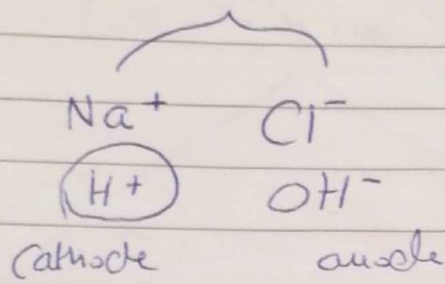 Na⁺ Cl⁻
H⁺ OH⁻
Cathode anode